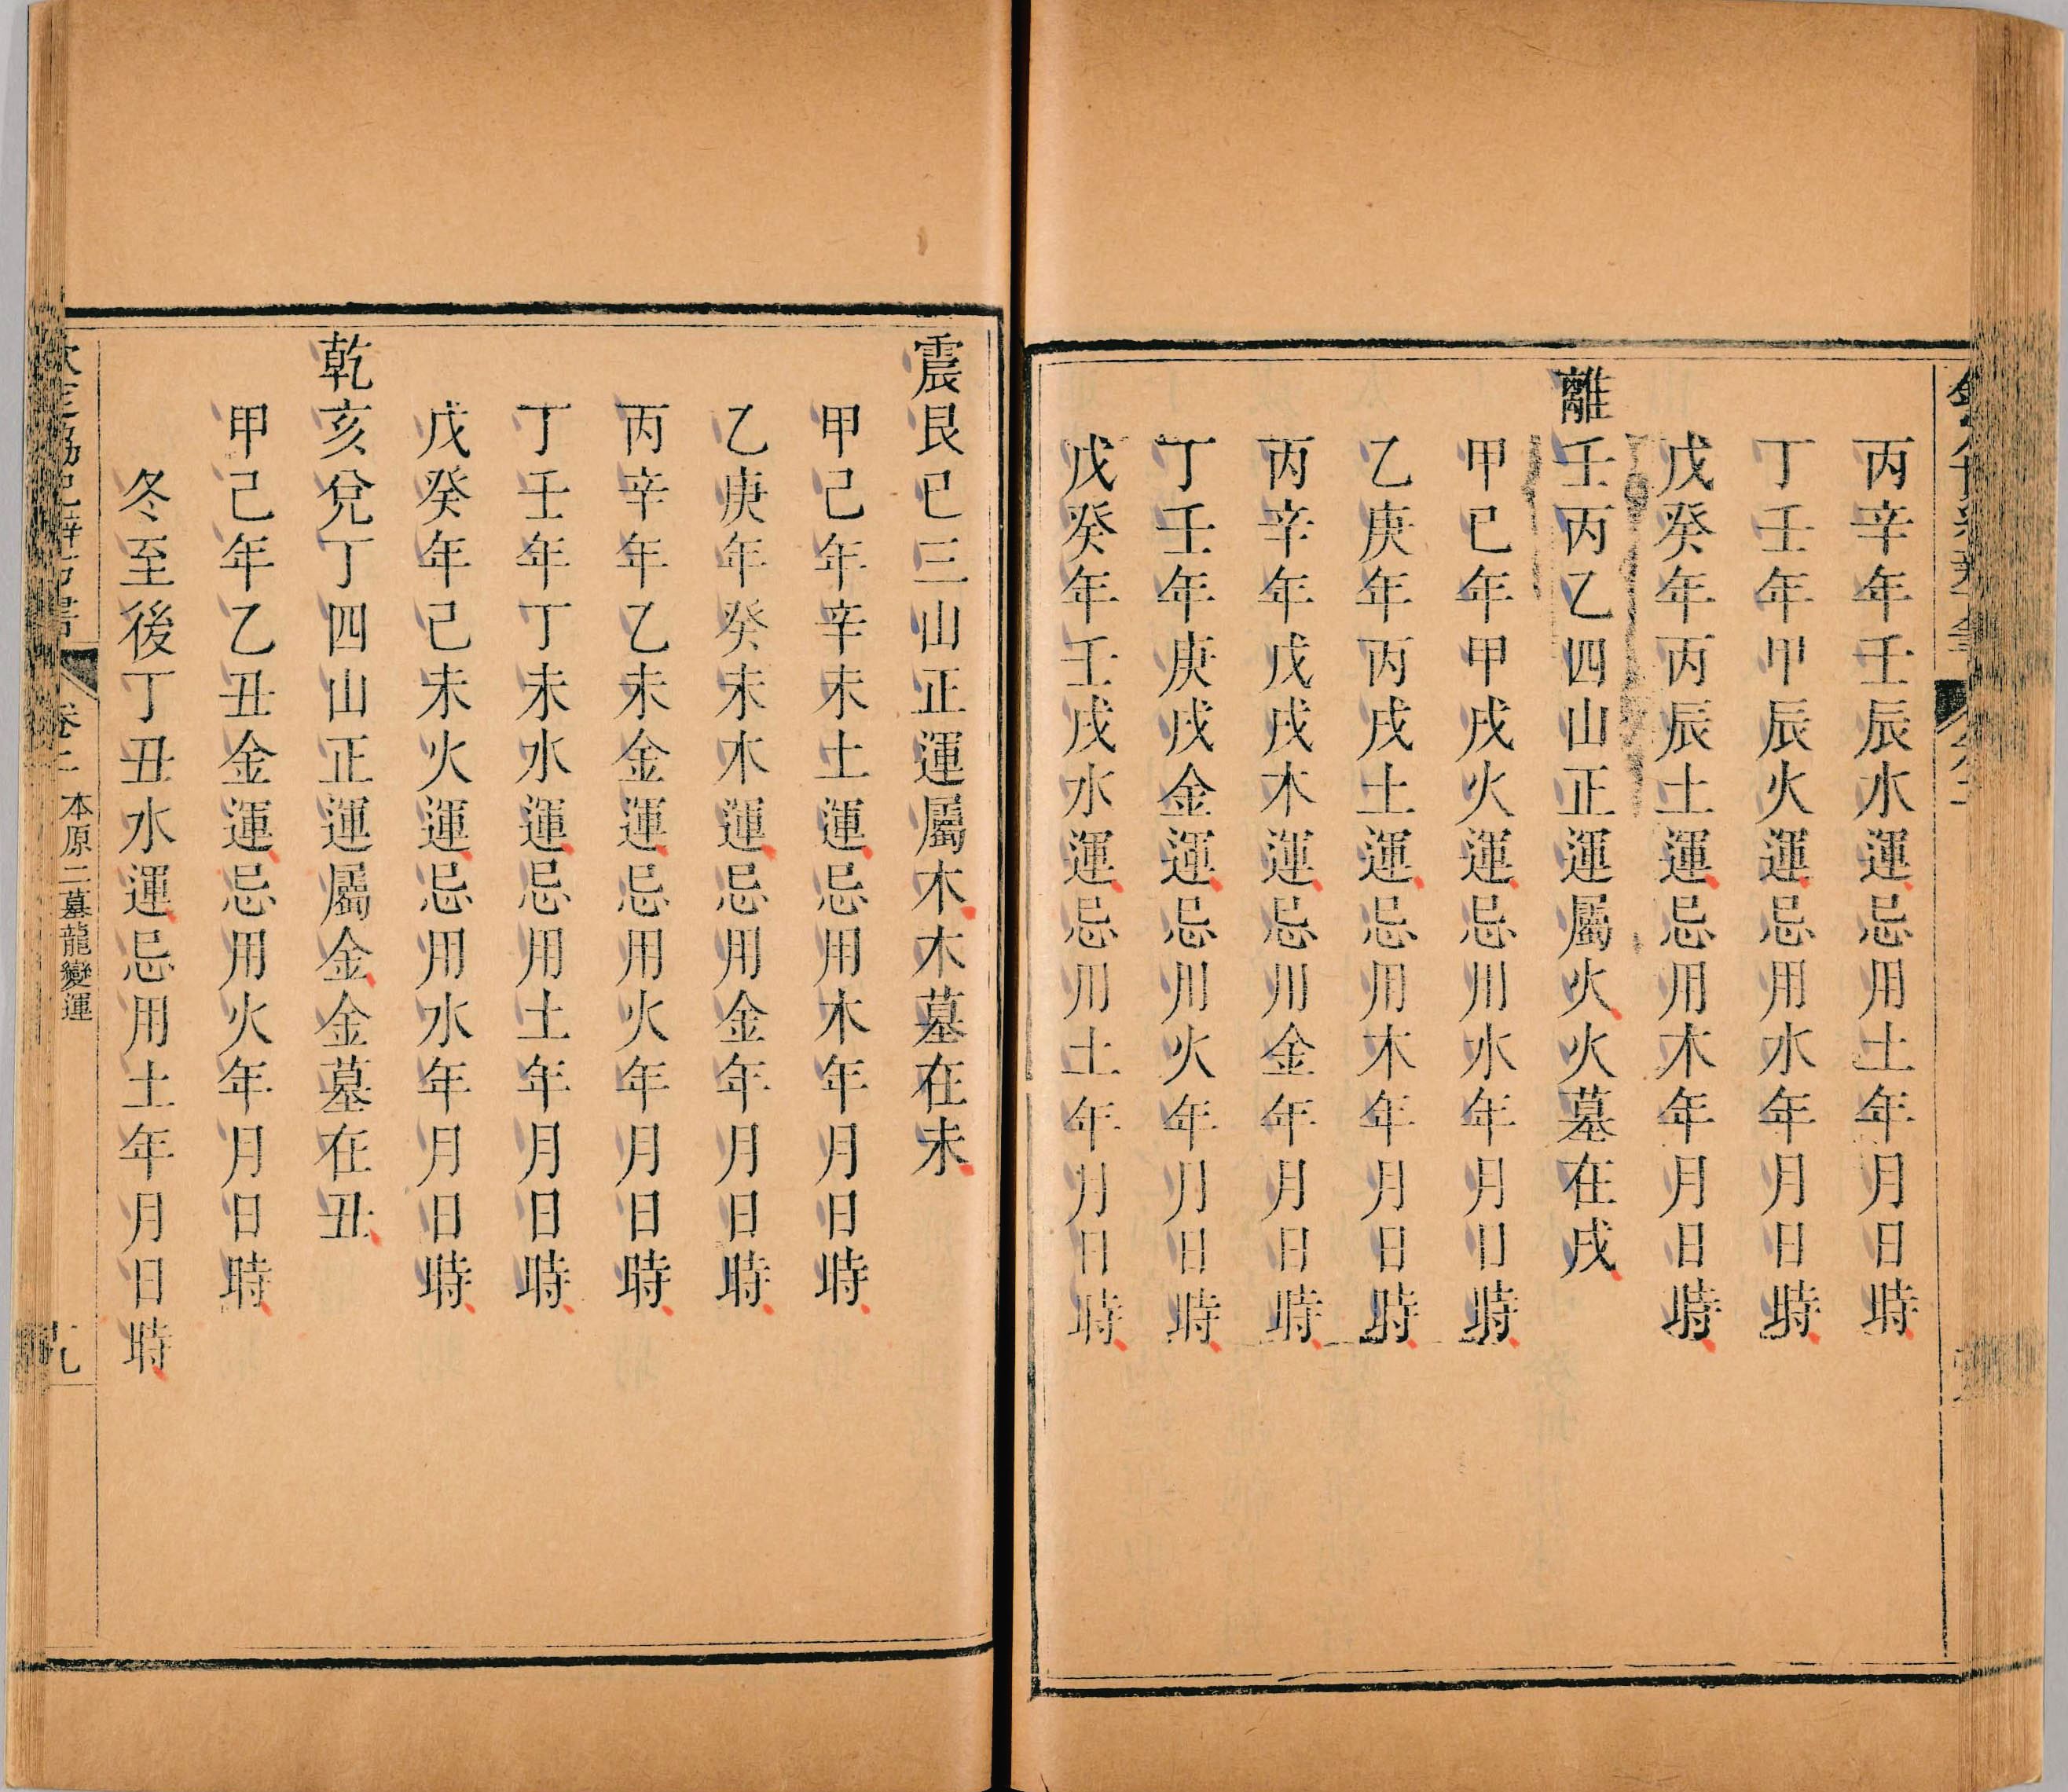 丙辛年壬辰水運忌用土年月日時
丁壬年甲辰火運忌用水年月日時
戊癸年丙辰土運忌用木年月日時
離壬丙乙四山正運屬火火墓在戌
甲已年甲戌火運忌用水年月日時
乙庚年丙戌土運忌用木年月日時
丙辛年戊戌木運忌用金年月日時
丁壬年庚戌金運忌用火年月日時
戊癸年壬戌水運忌用土年月日時
震艮巳三山正運屬木木墓在未
甲己年辛未土運忌用木年月日時
乙庚年癸未木運忌用金年月日時
丙辛年乙未金運忌用火年月日時
丁壬年丁未水運忌用土年月日時
戊癸年己未火運忌用水年月日時
乾亥兌丁四山正運屬金金墓在丑
甲己年乙丑金運忌用火年月日時
冬至後丁丑水運忌用土年月日時
卷二 本原二墓龍變運